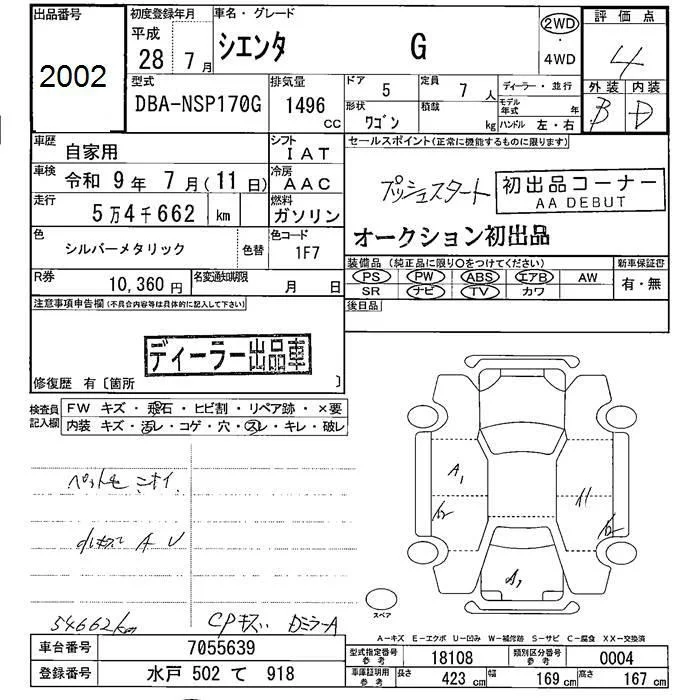 出品番号 初度登録年月 車名・グレード 2WD 評価点
2002 平成 28 年 7 月 シエンタ G 4WD 4
型式 排気量 ドア 定員 ディーラー・並行 外装 内装
DBA-NSP170G 1496 CC 5 7 人 モデル年式 年 B D
形状 積載 ワゴン kg ハンドル 左・右
車歴 自家用 シフト IAT セールスポイント(正常に機能するものに限ります)
車検 令和 9 年 7 月(11 日) 冷房 AAC プッシュスタート 初出品コーナー
AA DEBUT
走行 5万4千662 km 燃料 ガソリン オークション初出品
色 シルバーメタリック 色替 色コード 1F7
装備品(純正品に限り○をつけてください) 新車保証書
PS PW ABS エアB AW 有・無
SR ナビ TV カワ
R券 10,360 円 名変通知期限 月 日
注意事項申告欄(不具合内容等は具体的に記入して下さい) 後日品
ディーラー出品車
修復歴 有〔箇所 〕
検査員記入欄 FW キズ・飛石・ヒビ割・リペア跡・×要
内装 キズ・汚レ・コゲ・穴・スレ・キレ・破レ
ペット毛 ニオイ
小キズ A U
54662km CPキズ DミラーA
A1
A1
スペア
A-キズ E-エクボ U-凹み W-補修跡 S-サビ C-腐食 XX-交換済
車台番号 7055639 型式指定番号 参考 18108 類別区分番号 参考 0004
登録番号 水戸 502 て 918 車庫証明用 参考 長さ 423 cm 幅 169 cm 高さ 167 cm